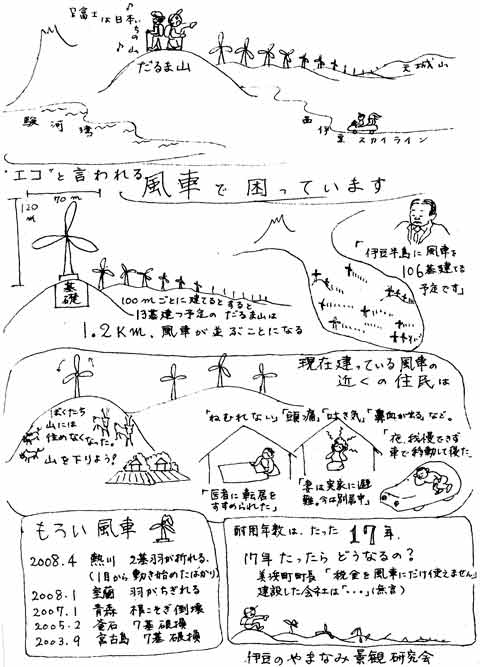 ♪富士は日本いちの山♪
だるま山
天城山
駿河湾
西伊豆スカイライン
"エコ"と言われる風車で困っています
70m
120m
基礎
100mごとに建てるとすると
13基建つ予定のだるま山は
1.2Km、風車が並ぶことになる
「伊豆半島に風車を
106基建てる
予定です」
現在建っている風車の
近くの住民は
ぼくたち
山には
住めなくなった。
山を下りよう!
「ねむれない」「頭痛」「吐き気」「鼻血が出る」など。
「医者に転居を
すすめられた」
「妻は実家に避
難。今は別居中」
「夜、我慢できず
車で移動して寝た。
もろい風車
2008.4 熱川 2基羽が折れる。
(1月から動き始めたばかり)
2008.1 室蘭 羽がちぎれる
2007.1 青森 根こそぎ倒壊
2005.2 釜石 7基破損
2003.9 宮古島 7基破損
耐用年数は、たった17年。
17年たったらどうなるの?
美浜町町長「税金を風車にだけ使えません」
建設した会社は「・・・」(無言)
伊豆のやまなみ景観研究会